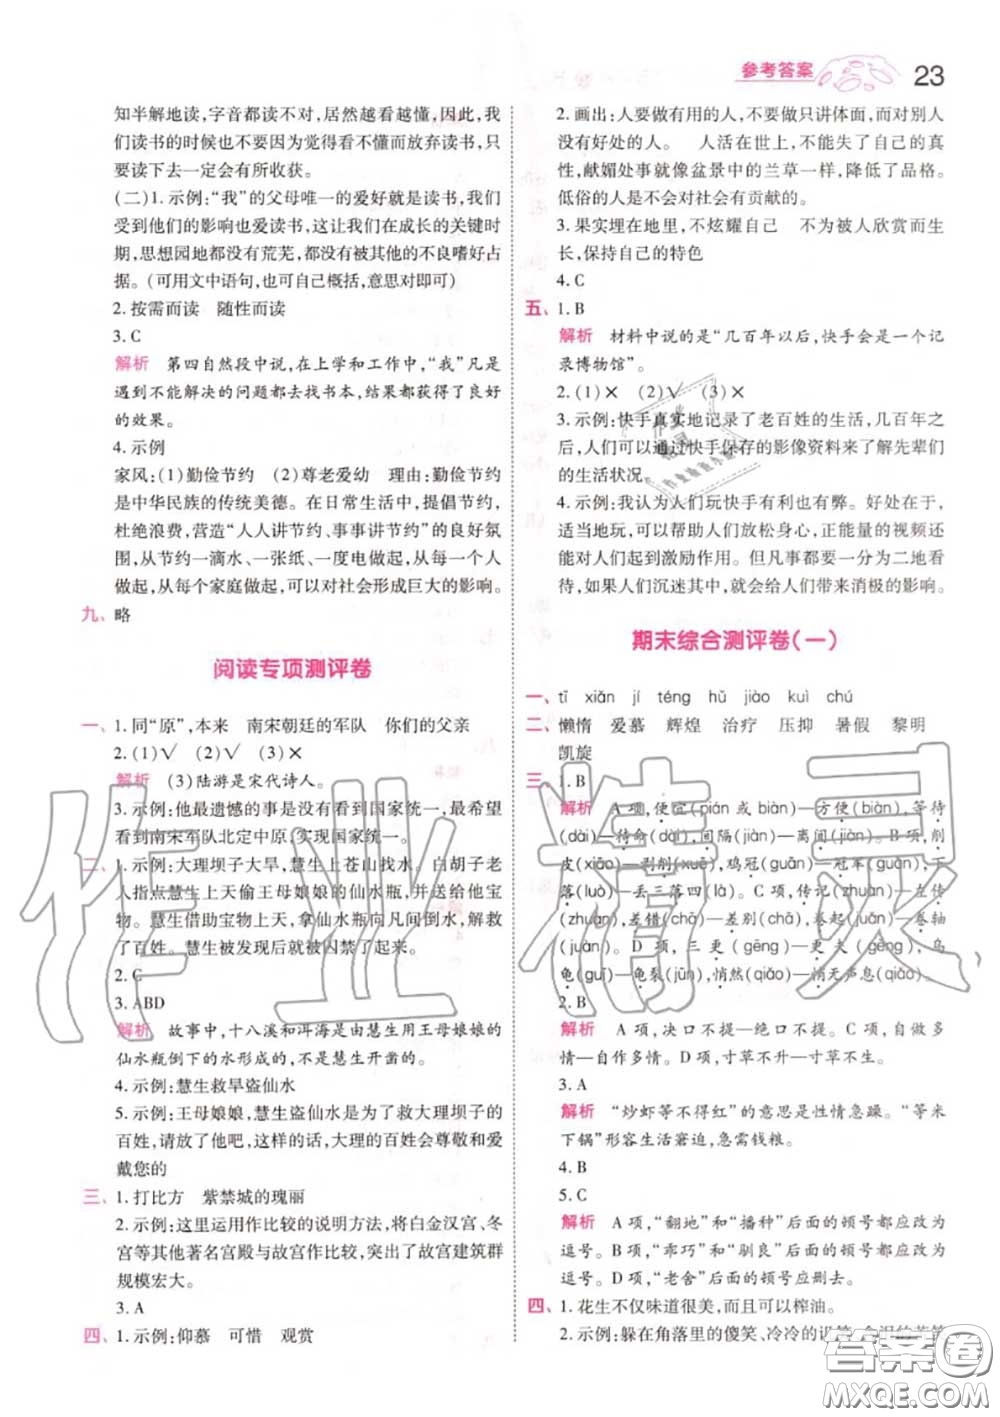 参考答案
23
知半解地读,字音都读不对,居然越看越懂,因此,我
们读书的时候也不要因为觉得看不懂而放弃读书,只
要读下去一定会有所收获。
(二)1. 示例:“我”的父母唯一的爱好就是读书,我们
受到他们的影响也爱读书,这让我们在成长的关键时
期,思想园地都没有荒芜,都没有被其他的不良嗜好占
据。(可用文中语句,也可自己概括,意思对即可)
2. 按需而读 随性而读
3. C
解析 第四自然段中说,在上学和工作中,“我”凡是
遇到不能解决的问题都去找书本,结果都获得了良好
的效果。
4. 示例
家风:(1)勤俭节约 (2)尊老爱幼 理由:勤俭节约
是中华民族的传统美德。在日常生活中,提倡节约,
杜绝浪费,营造“人人讲节约、事事讲节约”的良好氛
围,从节约一滴水、一张纸、一度电做起,从每一个人
做起,从每个家庭做起,可以对社会形成巨大的影响。
九、略
阅读专项测评卷
一、1. 同“原”,本来 南宋朝廷的军队 你们的父亲
2. (1)√ (2)√ (3)×
解析 (3)陆游是宋代诗人。
3. 示例:他最遗憾的事是没有看到国家统一,希望能
看到南宋军队北定中原,实现国家统一。
二、1. 示例:大理坝子大旱,慧生上苍山找水,白胡子老
人指点慧生上天偷王母娘娘的仙水瓶,并送给他宝
物。慧生借助宝物上天,拿仙水瓶向凡间倒水,解救
了百姓。慧生被发现后就被囚禁了起来。
2. C
3. ABD
解析 故事中,十八溪和洱海是由慧生用王母娘娘的
仙水瓶倒下的水形成的,不是慧生开凿的。
4. 示例:慧生救旱盗仙水
5. 示例:王母娘娘,慧生盗仙水是为了救大理坝子的
百姓,请放了他吧,这样的话,大理的百姓会尊敬和爱
戴您的
三、1. 打比方 紫禁城的瑰丽
2. 示例:这里运用作比较的说明方法,将白金汉宫、冬
宫等其他著名宫殿与故宫作比较,突出了故宫建筑群
规模宏大。
3. A
四、1. 示例:仰慕 可惜 观赏
2. 画出:人要做有用的人,不要做只讲体面,而对别人
没有好处的人。 人活在世上,不能失去了自己的真
性,献媚处事就像盆景中的兰草一样,降低了品格。
低俗的人是不会对社会有贡献的。
3. 果实埋在地里,不炫耀自己 不为被人欣赏而生
长,保持自己的特色
4. C
五、1. B
解析 材料中说的是“几百年以后,快手会是一个记
录博物馆”。
2. (1)× (2)√ (3)×
3. 示例:快手真实地记录了老百姓的生活,几百年之
后,人们可以通过快手保存的影像资料来了解先辈们
的生活状况。
4. 示例:我认为人们玩快手有利也有弊。好处在于,
适当地玩,可以帮助人们放松身心,正能量的视频还
能对人们起到激励作用。但凡事都要一分为二地看
待,如果人们沉迷其中,就会给人们带来消极的影响。
期末综合测评卷(一)
一、tī xiǎn jí téng hǔ jiào kuì chú
二、懒惰 爱慕 辉煌 治疗 压抑 暑假 黎明
凯旋
三、1. B
解析 A 项,便宜(pián 或 biàn)—方便(biàn),等待
(dài)—待命(dài),间隔(jiàn)—离间(jiàn)。B 项,削
皮(xiāo)—剥削(xuē),鸡冠(guān)—冠军(guàn),下
落(luò)—丢三落四(là)。C 项,传记(zhuàn)—左传
(zhuàn),差错(chā)—差别(chā),卷起(juǎn)—卷轴
(juàn)。D 项,三更(gēng)—半夜三更(gēng),乌
龟(guī)—龟裂(jūn),悄然(qiǎo)—悄无声息(qiǎo)。
2. B
解析 A 项,决口不提—绝口不提。C 项,自做多
情—自作多情。D 项,寸草不升—寸草不生。
3. A
解析 “炒虾等不得红”的意思是性情急躁。“等米
下锅”形容生活窘迫,急需钱粮。
4. B
5. C
解析 A 项,“翻地”和“播种”后面的顿号都应改为
逗号。B 项,“乖巧”和“驯良”后面的顿号应改为
逗号。D 项,“老舍”后面的顿号应删去。
四、1. 花生不仅味道很美,而且可以榨油。
2. 示例:躲在角落里的傻笑、冷冷的
作业精灵
答案圈
MXQE.COM